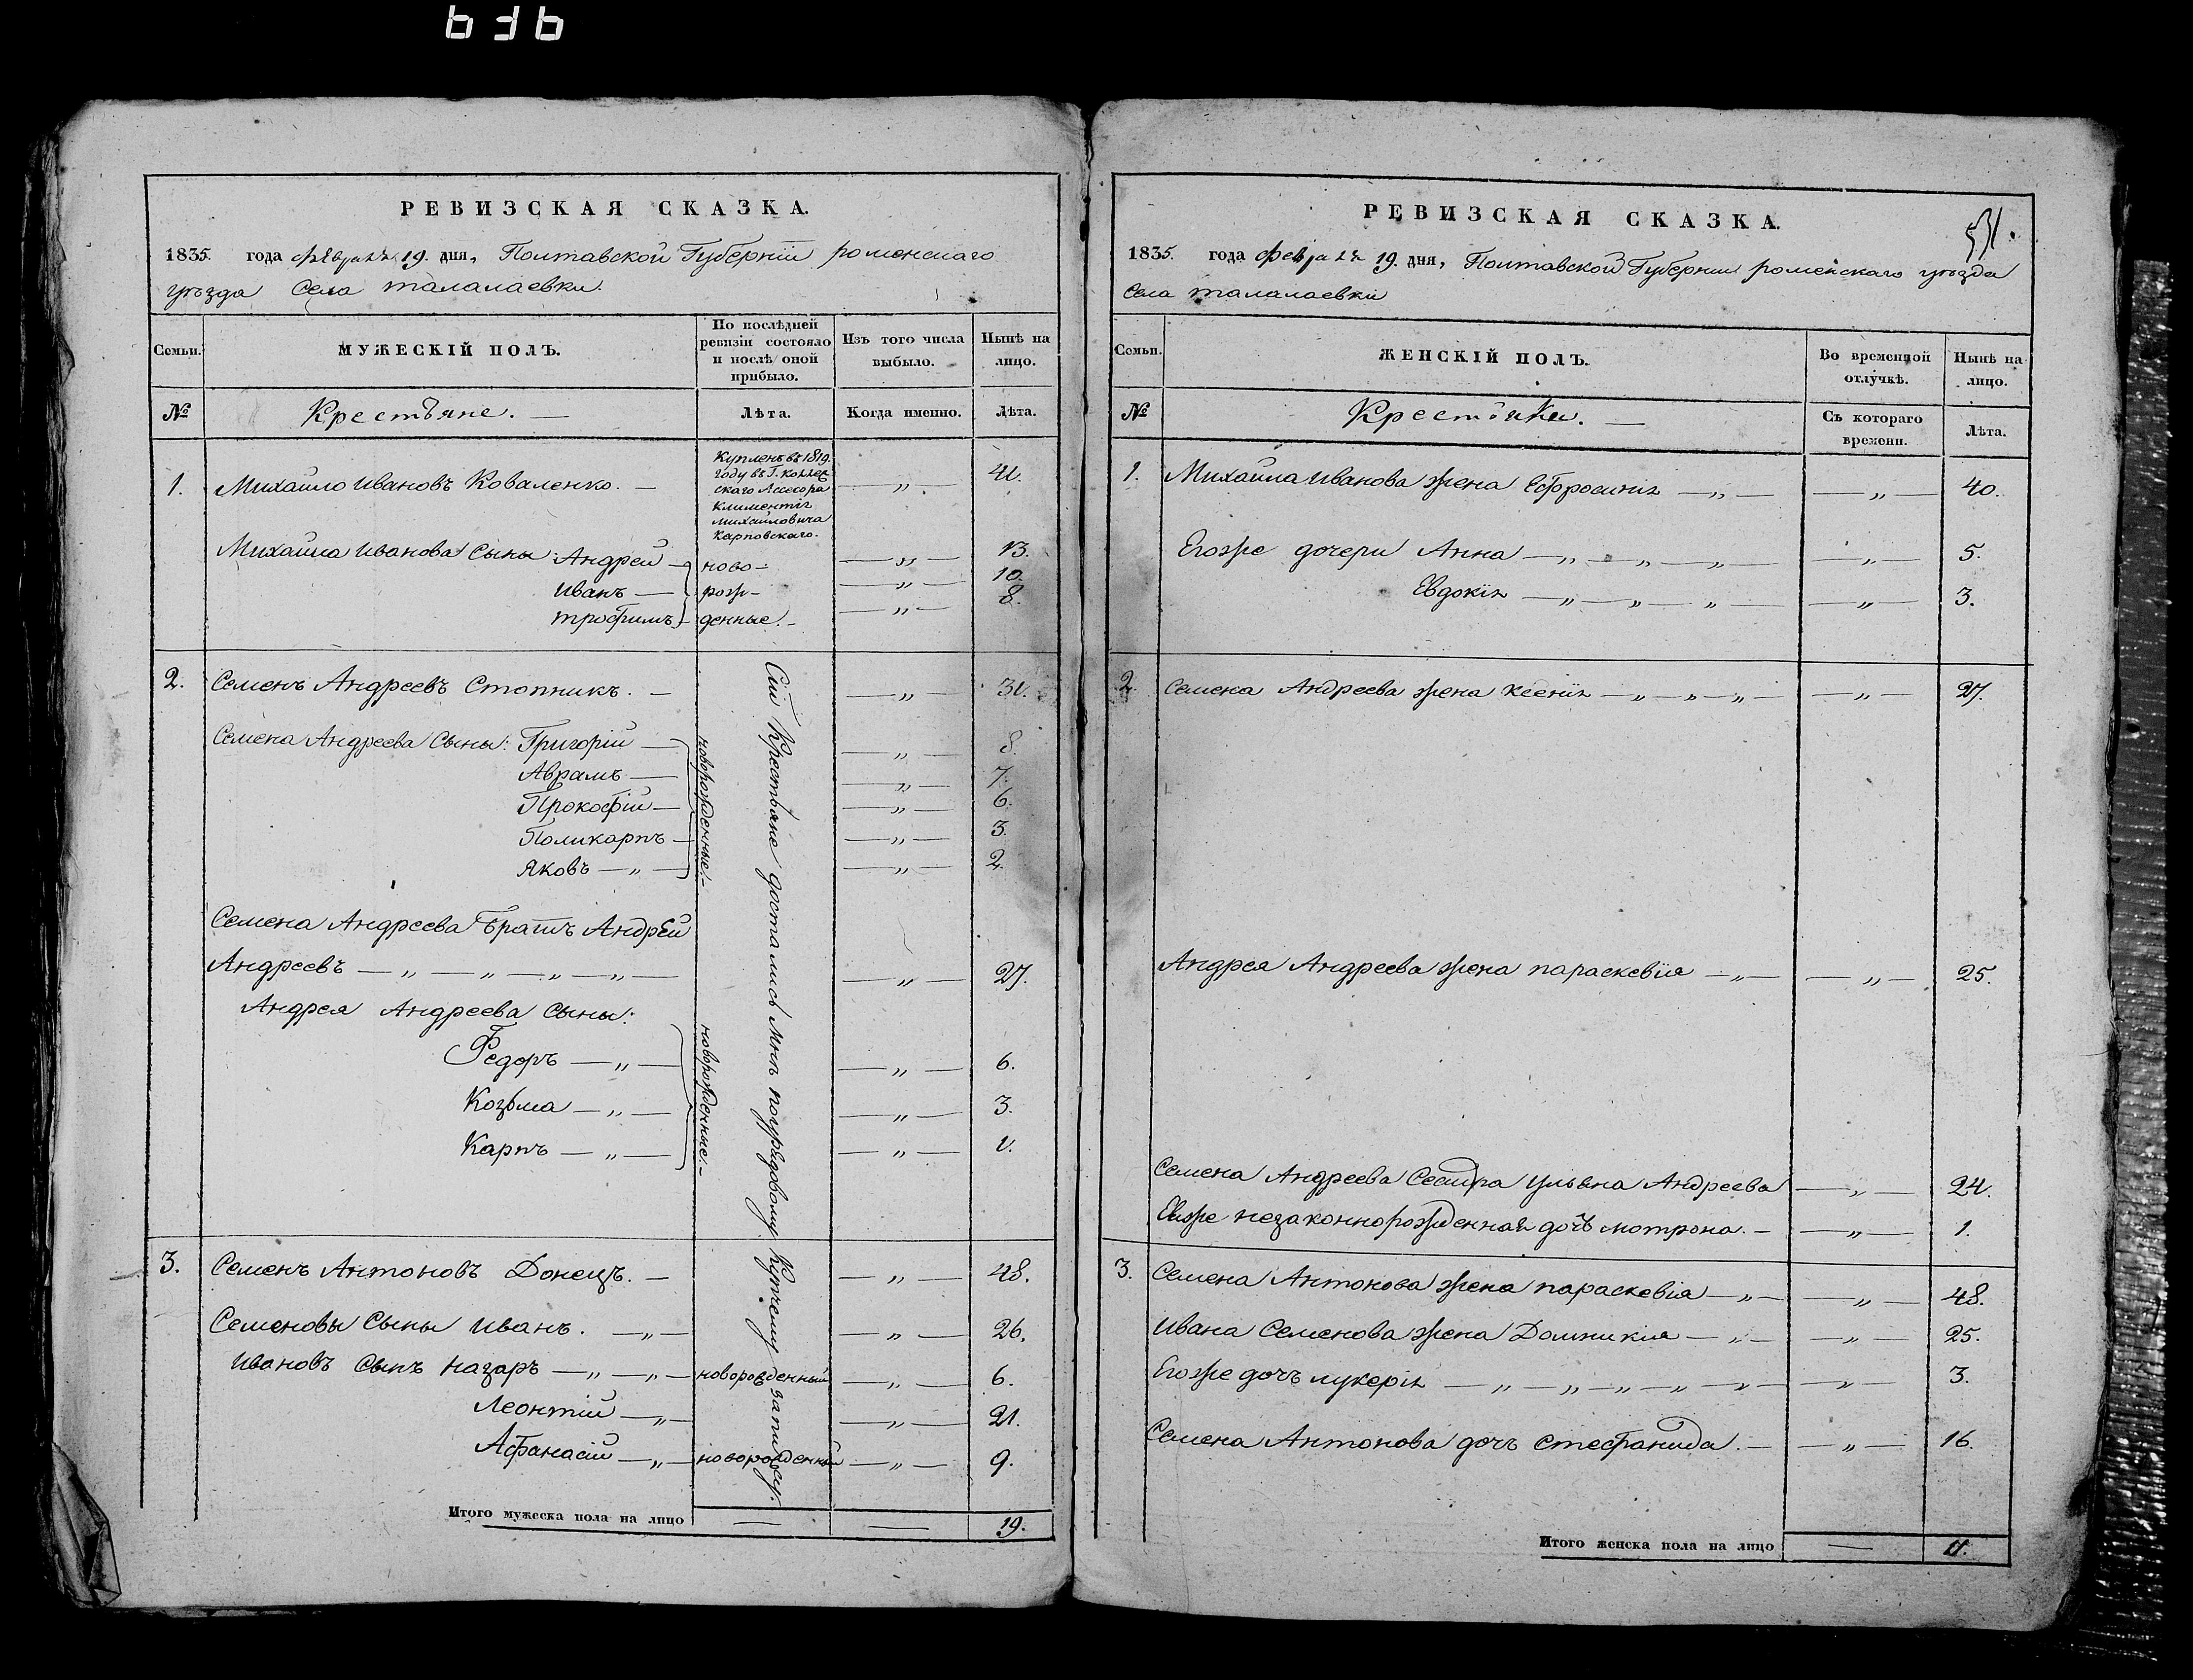 636
РЕВИЗСКАЯ СКАЗКА.
1835. года февраля 19. дня, Полтавской Губерніи роменскаго
уѣзда Села талалаевки.
Семьи.
МУЖЕСКІЙ ПОЛЪ.
По послѣдней ревизіи состояло и послѣ оной прибыло.
Изъ того числа выбыло.
Нынѣ на лицо.
№
Крестьяне. —
Лѣта.
Когда именно.
Лѣта.
1. Михайло Ивановъ Коваленко. — Купленъ въ 1819. — „ — 41.
году въ Г. коллеж
скаго Ассесора
Климентія
михайловича
карповскаго.
Михайла Иванова Сыны: Андрей — ново- — „ — 13.
Иванъ — рож- — „ — 10.
трофимъ — денные. - — „ — 8.
2. Семенъ Андреевъ Стопникъ. — — „ — 31.
Семена Андреева Сыны: Григорій — — „ — 8.
Аврамъ — — „ — 7.
Прокофій — — „ — 6.
Поликарпъ — — „ — 3.
Яковъ — „ — — „ — 2.
новорожденные. -
Семена Андреева Братъ Андрей
Андреевъ — „ — „ — „ — „ — — „ — 27.
Андрея Андреева Сыны:
Федоръ — „ — — „ — 6.
Козьма — „ — — „ — 3.
Карпъ — „ — — „ — 1.
новорожденные. -
Сіи Крестьяне достались мнѣ по купчему запису.
3. Семенъ Антоновъ Донецъ. — — „ — 48.
Семеновы Сыны Иванъ. — „ — — „ — 26.
Ивановъ Сынъ назаръ — „ — „ — новорожденный — „ — 6.
Леонтій — „ — — „ — 21.
Афанасій — „ — новорожденный — „ — 9.
Итого мужеска пола на лицо — — 19.
РЕВИЗСКАЯ СКАЗКА.
51.
1835. года февраля 19. дня, Полтавской Губерніи роменскаго уѣзда
Села талалаевки
Семьи.
ЖЕНСКІЙ ПОЛЪ.
Во временной отлучкѣ.
Нынѣ на лицо.
№
Крестьянки. —
Съ котораго времени.
Лѣта.
1. Михайла Иванова жена Ефросинія — „ — — „ — 40.
Егоже дочери Анна — „ — „ — „ — — „ — 5.
Евдокія — „ — „ — „ — — „ — 3.
2. Семена Андреева жена ксенія — „ — „ — „ — — „ — 27.
Андрея Андреева жена параскевія — „ — — „ — 25.
Семена Андреева Сестра ульяна Андреева — „ — 24.
Еяже незаконнорожденная дочь мотрона. — — „ — 1.
3. Семена Антонова жена параскевія — „ — — „ — 48.
Ивана Семенова жена Домникія — „ — — „ — 25.
Егоже дочъ лукерія — „ — „ — „ — „ — „ — — „ — 3.
Семена Антонова дочъ стефанида. — — „ — 16.
Итого женска пола на лицо — 11.